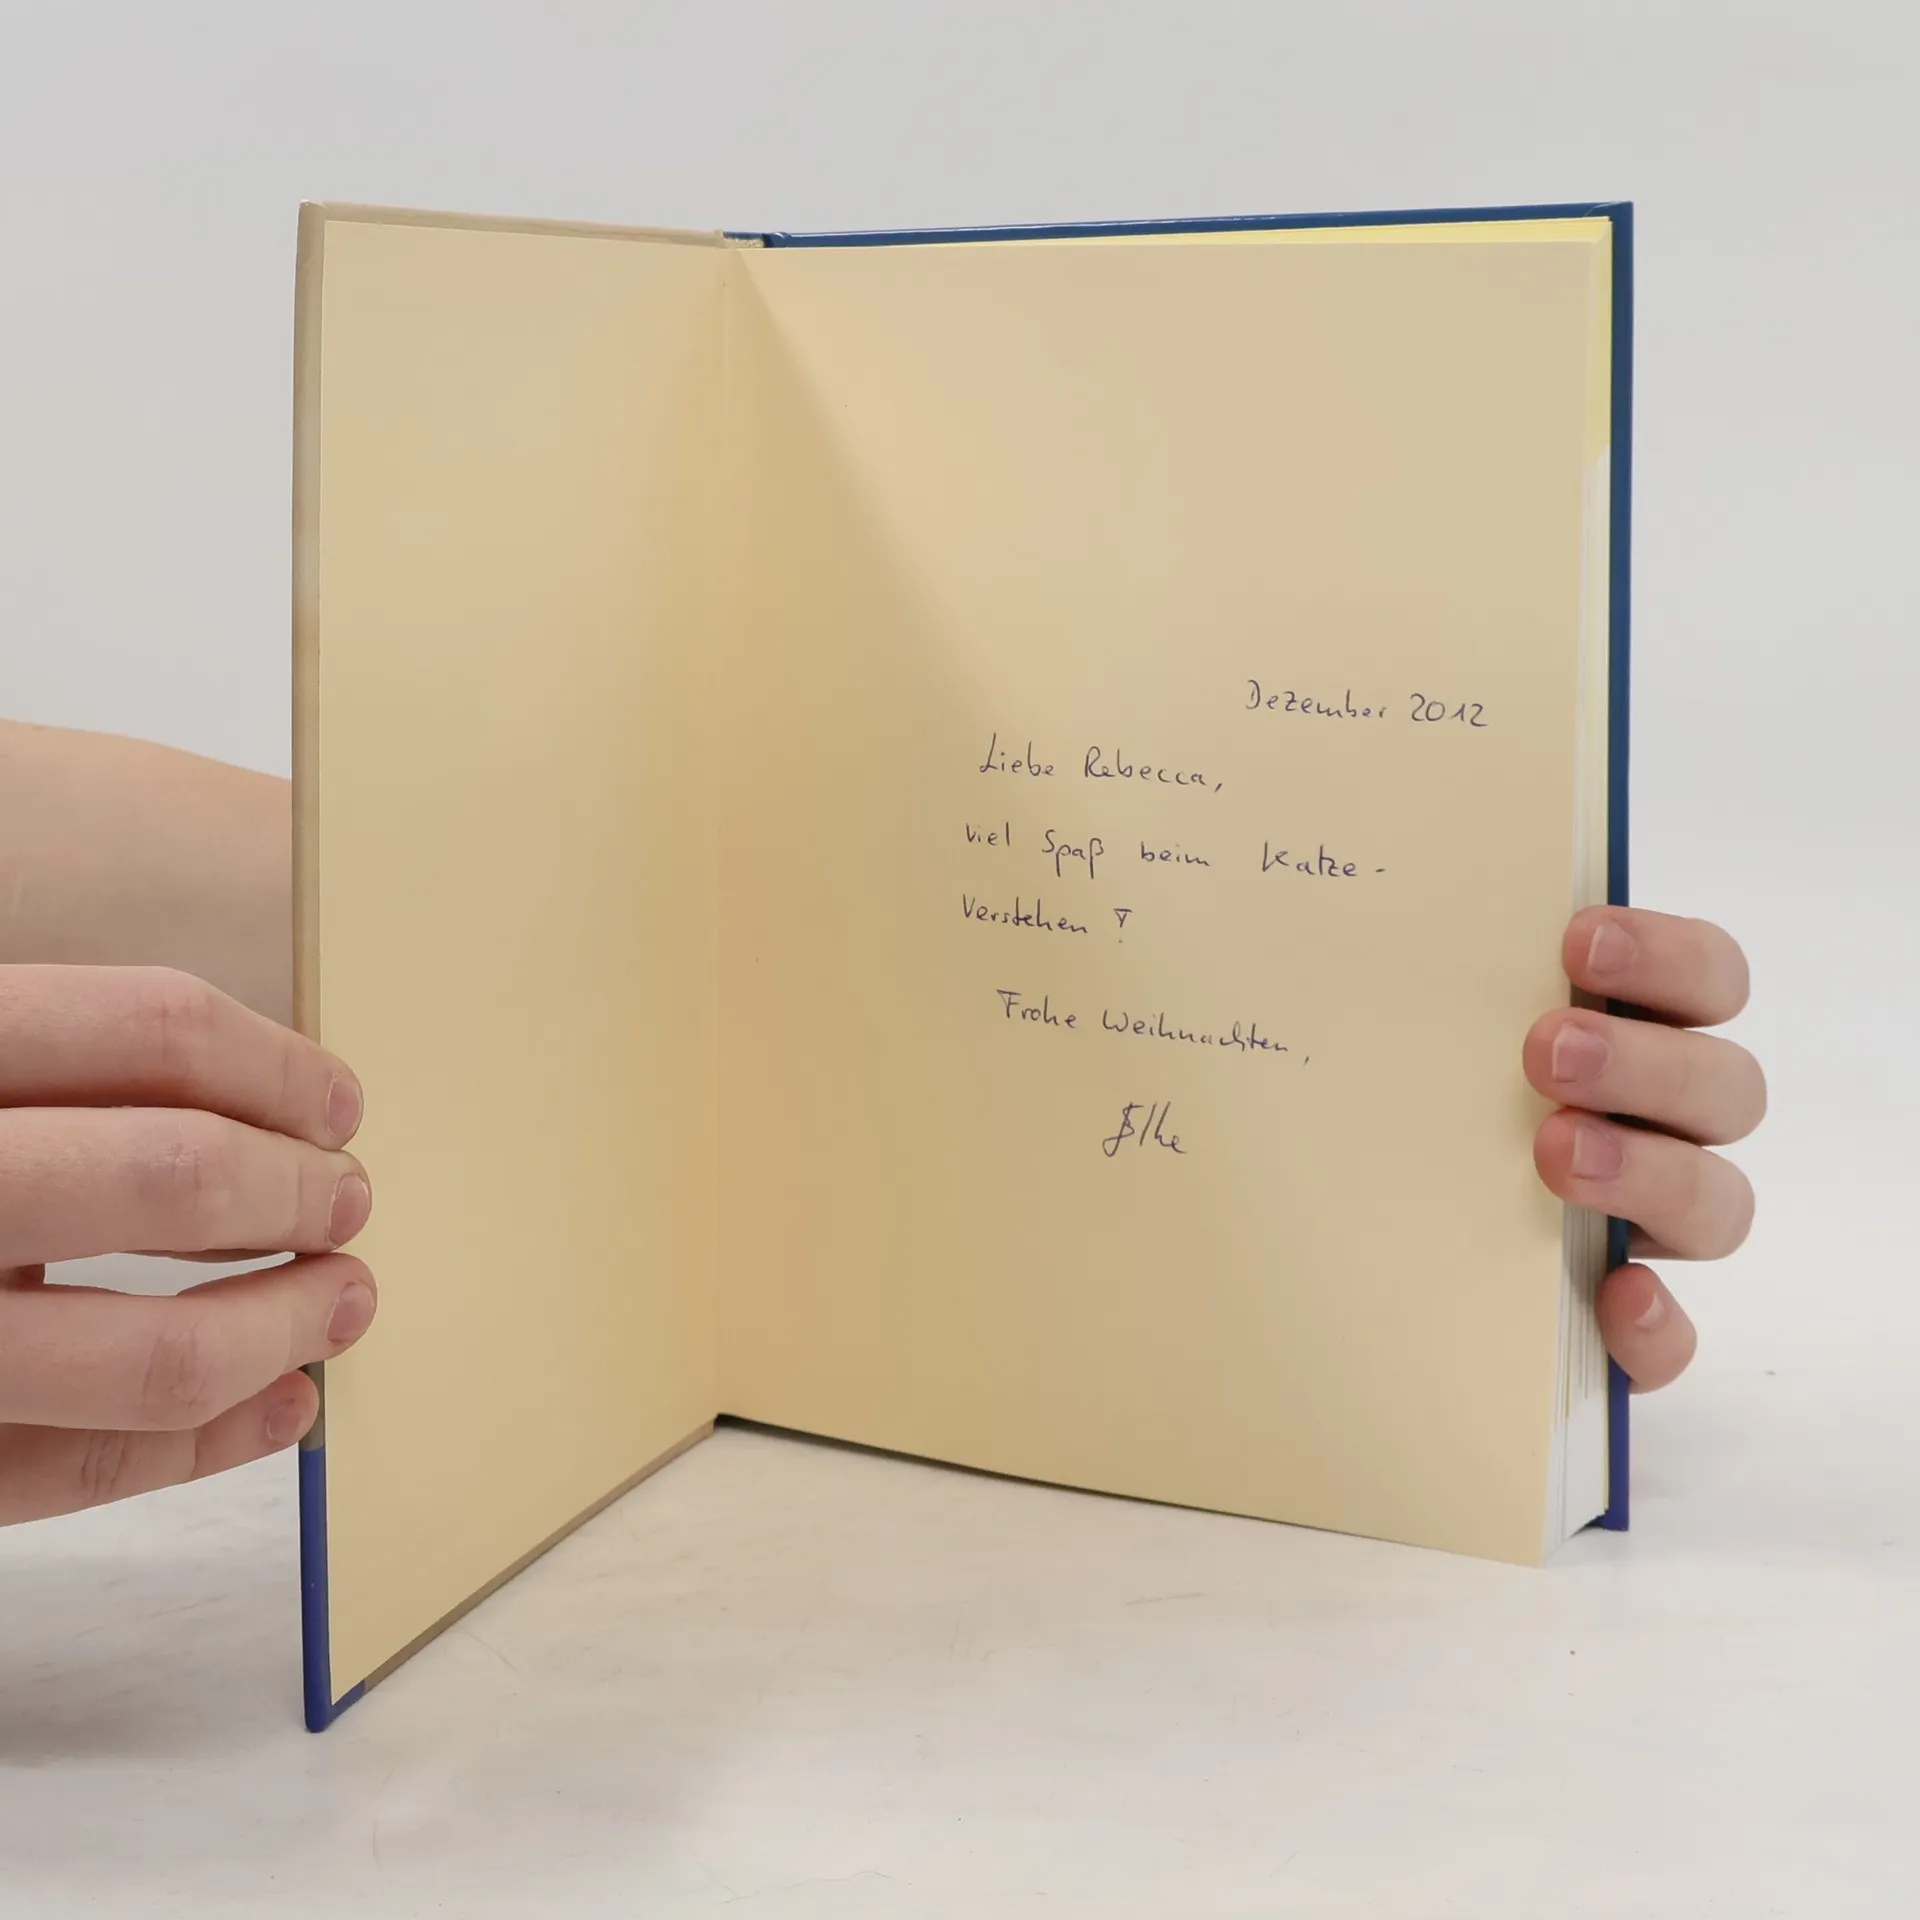 Dezember 2012
Liebe Rebecca,
viel Spaß beim Katze-
Verstehen!
Frohe Weihnachten,
Silke